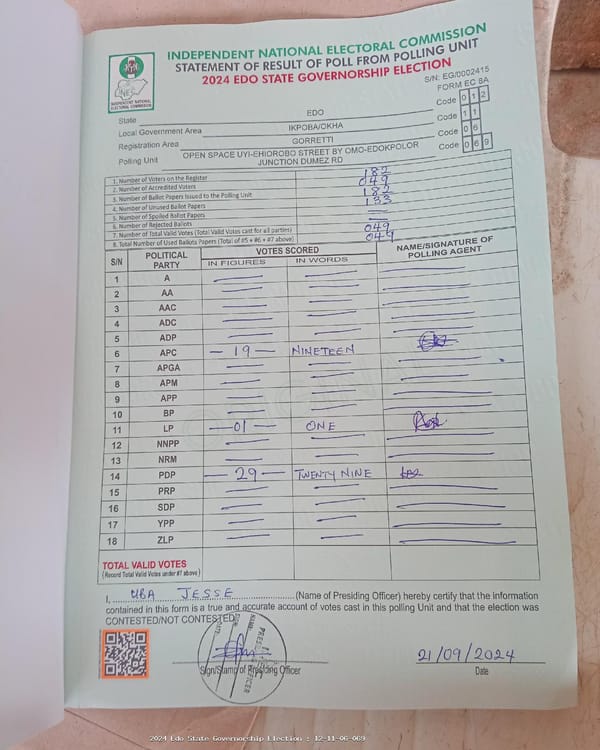 INDEPENDENT NATIONAL ELECTORAL COMMISSION
STATEMENT OF RESULT OF POLL FROM POLLING UNIT
2024 EDO STATE GOVERNORSHIP ELECTION
S/N: EG/0002415
FORM EC 8A
INDEPENDENT NATIONAL ELECTORAL COMMISSION
State EDO Code 0 1 2
Local Government Area IKPOBA/OKHA Code 1 1
Registration Area GORRETTI Code 0 6
Polling Unit OPEN SPACE UYI-EHIOROBO STREET BY OMO-EDOKPOLOR JUNCTION DUMEZ RD Code 0 6 9
1. Number of Voters on the Register 182
2. Number of Accredited Voters 049
3. Number of Ballot Papers Issued to the Polling Unit 182
4. Number of Unused Ballot Papers 133
5. Number of Spoiled Ballot Papers —
6. Number of Rejected Ballots —
7. Number of Total Valid Votes (Total Valid Votes cast for all parties) 049
8. Total Number of Used Ballots Papers (Total of #5 + #6 + #7 above) 049
S/N POLITICAL PARTY VOTES SCORED NAME/SIGNATURE OF POLLING AGENT
IN FIGURES IN WORDS
1 A
2 AA
3 AAC
4 ADC
5 ADP
6 APC — 19 — NINETEEN
7 APGA
8 APM
9 APP
10 BP
11 LP — 01 — ONE
12 NNPP
13 NRM
14 PDP — 29 — TWENTY NINE
15 PRP
16 SDP
17 YPP
18 ZLP
TOTAL VALID VOTES
(Record Total Valid Votes under #7 above)
I, UBA JESSE (Name of Presiding Officer) hereby certify that the information
contained in this form is a true and accurate account of votes cast in this polling Unit and that the election was
CONTESTED/NOT CONTESTED
Sign/Stamp of Presiding Officer
21/09/2024
Date
2024 Edo State Governorship Election : 12-11-06-069